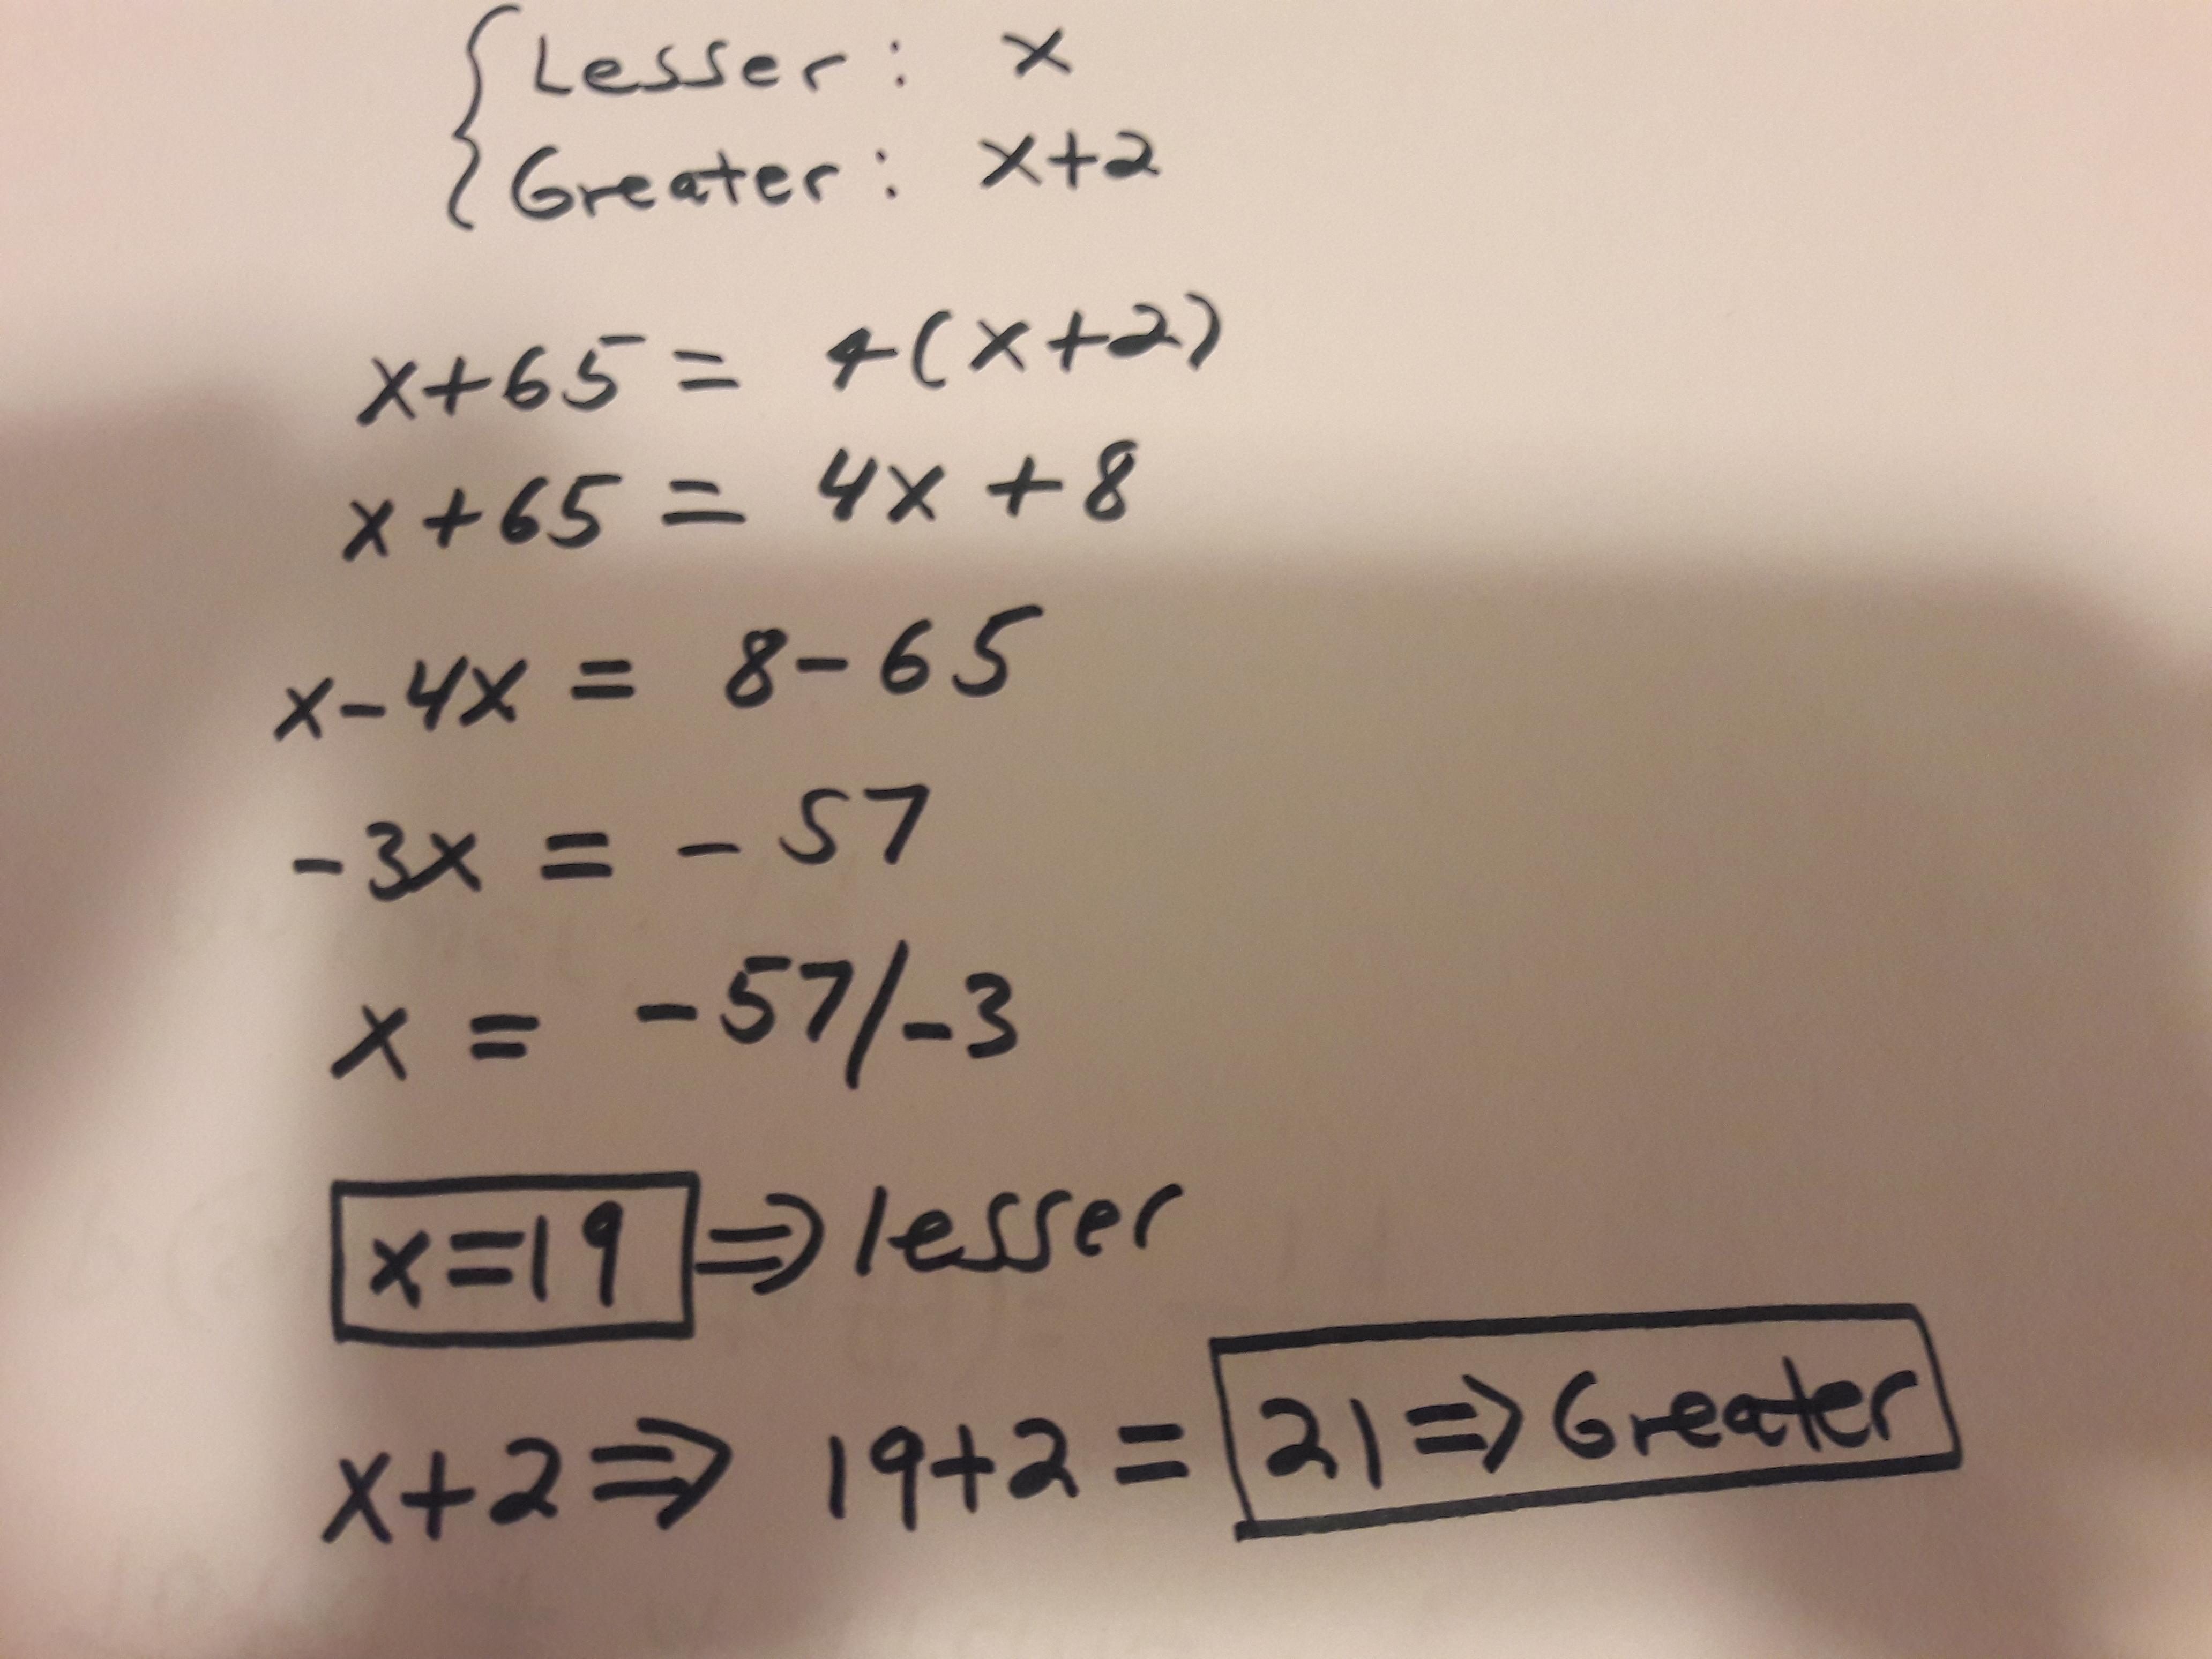 Lesser: x
Greater: x+2
x+65 = 4(x+2)
x+65 = 4x+8
x-4x = 8-65
-3x = -57
x = -57/-3
x=19 ⇒ lesser
x+2 ⇒ 19+2 = 21 ⇒ Greater